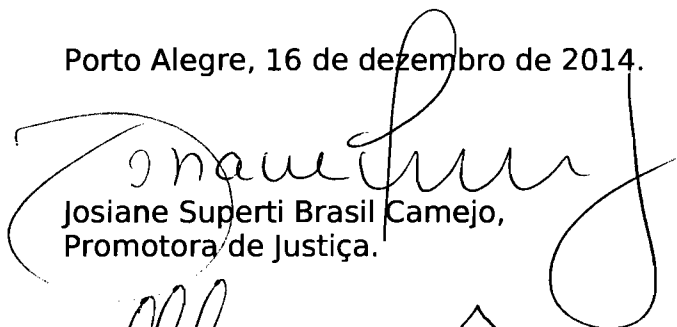 Porto Alegre, 16 de dezembro de 2014.
Josiane Superti Brasil Camejo,
Promotora de Justiça.